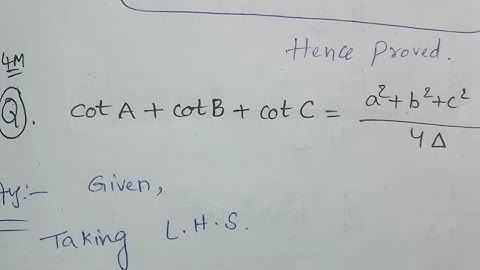 Hence Proved.
4M
Q. cot A + cot B + cot C = a²+b²+c² / 4Δ
Given,
Taking L.H.S.